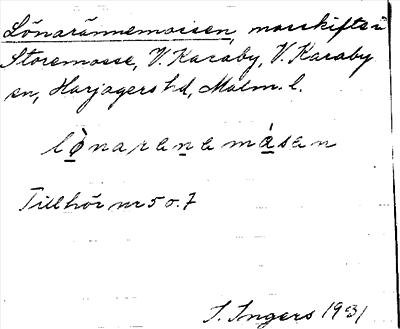 Lönarännemosen, mosskifte i
Storemosse, V. Karaby, V. Karaby
sn, Harjagers hd, Malm. l.
lònaranamåsan
Tillhör nr 5 o. 7
I. Ingers 1931